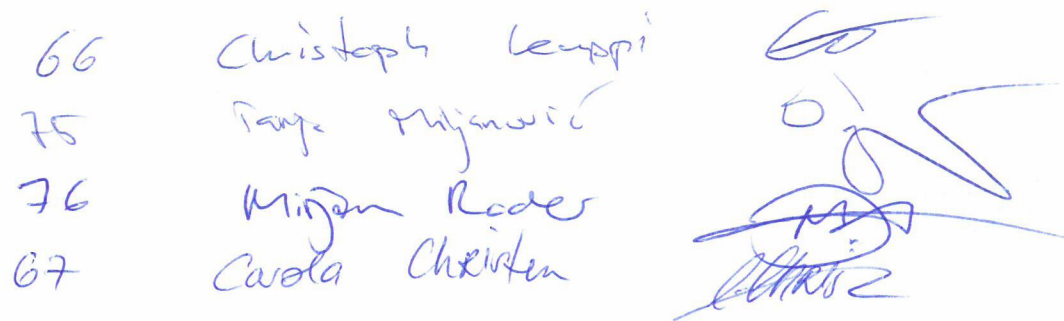 66 Christoph Lemppi
75 Tanja Miljanović
76 Mirjam Rader
67 Carola Christen